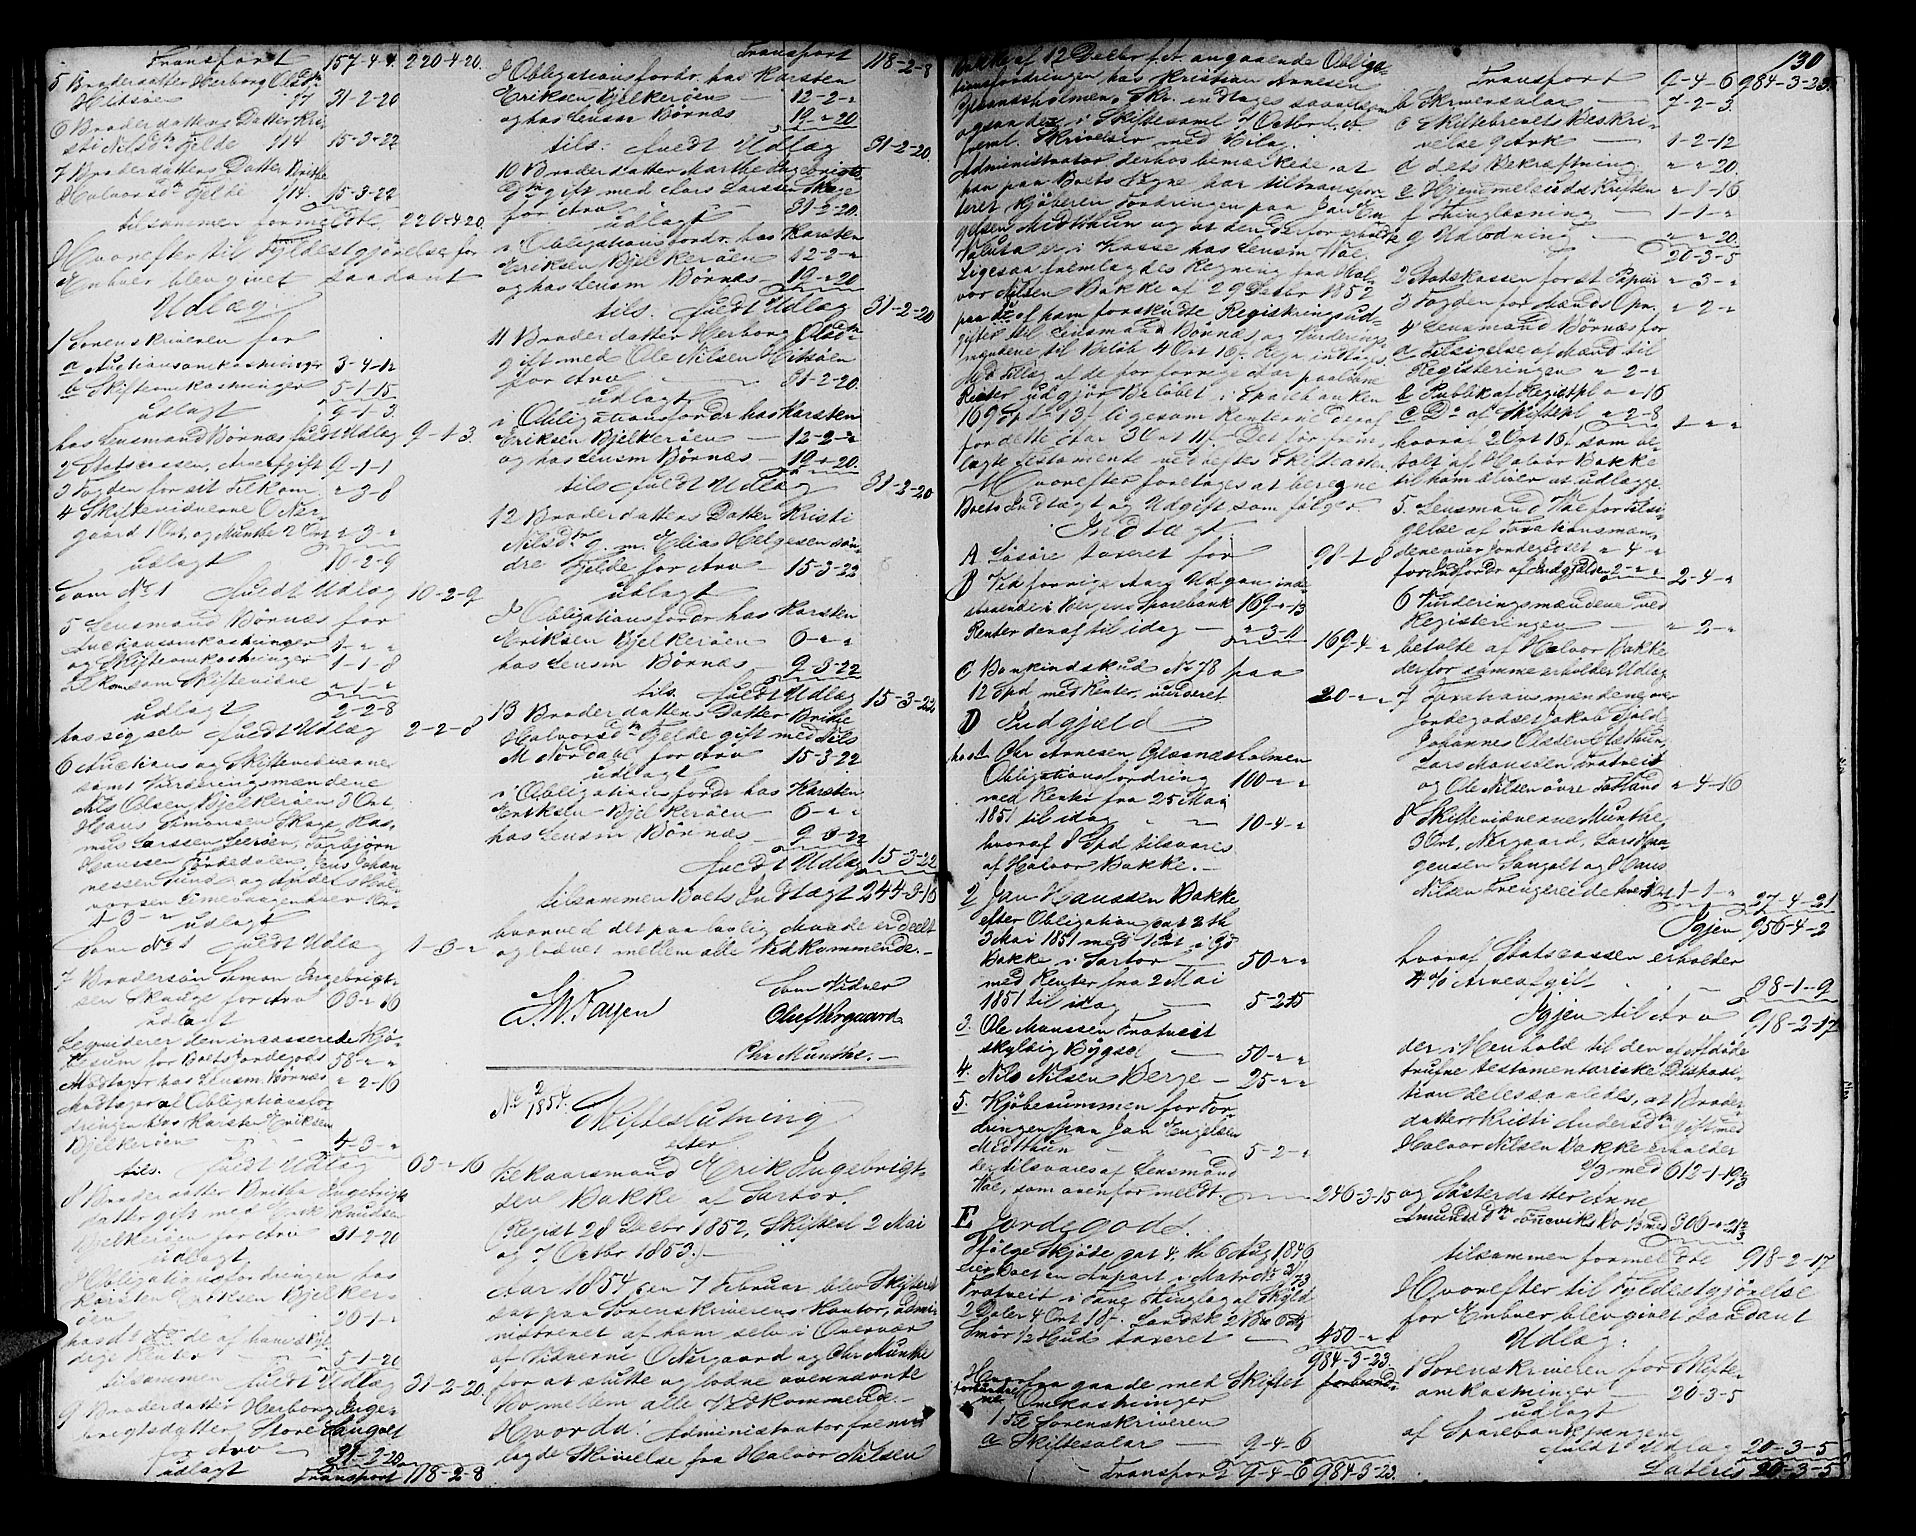 Transport 157-4-4. 220-4-20.
5 Broderdatter Herborg Olsdtr
Hitsöe 1/7 31-2-20
6 Broderdattens Datter Kri-
sti Nilsdtr Fjelde 1/14 15-3-22
7 Broderdattens Datter Brithe
Halvorsdtr Fjelde 1/14. 15-3-22
tilsammen formeldte 220-4-20.
Hvorefter til Fyldestgjörelse for
Enhver blev givet saadant
Udlæg:
1 Sorenskriveren for
a Auctionsomkostninger 3-4-12
b Skifteomkostninger 5-1-15
udlagt 9-1-3
hos Lensmand Börnæs fuldt Udlæg 9-1-3.
2 Statscassen, Arveafgift 9-1-1
3 Fogden for sit Tilkom. "-3-8
4 Skiftevidnerne O Ner-
gaard 1 Ort, og Munthe 2 Ort "-3-"
udlagt 10-2-9
Som No 1 fuldt Udlæg 10-2-9
5 Lensmand Börnæs for
Auctionsomkostninger 1-"-"
og Skifteomkostninger 1-1-8
Tilkom som Skiftevidne "-1-"
udlagt 2-2-8
hos sig selv fuldt Udlæg 2-2-8
6 Auctions og Skiftevidnerne
samt Vurderingsmændene
Nils Olsen Bjelkeröen 3 Ort
Hans Simonsen Skage, Ras-
mus Larssen Leeröen, Torbjörn
Haussen Tördedalen, Jens Johan-
nessen Lund og Anders Hal-
vorsen
1-3-" udlagt
Som No 1 fuldt Udlæg 1-3-"
7 Brodersön Simon Ingebrigt-
sen Skauge for Arv 63-"-16
udlagt
Leqviderer den incasserede Kjö-
besum for Boets Jordegods 58-"-"
Modtager hos Lensm. Börnæs "-2-16
Modtager al Obligationsfor-
dringen hos Karsten Eriksen
Bjelkeröen 4-3-"
tils. fuldt Udlæg 63-"-16
8 Broderdatter Britha Ingebrigts-
datter gift med Erik Knudsen
Bjelkeröen for Arv 31-2-20
udlagt
I Obligationsfordringen hos
Karsten Eriksen Bjelker-
öen 26-1-"
samt i de af ham skyl-
dige Renter 5-1-20
tilsammen fuldt Udlæg 31-2-20.
9 Broderdatter Herborg Inge-
brigtsdatter, Store Sangolt
for Arv 31-2-20
udlagt Transport 118-2-8

Transport 118-2-8
I Obligationsfordr. hos Karsten
Eriksen Bjelkeröen 12-2-"
og hos Lensm Börnæs 19-"-20
tils. fuldt Udlæg 31-2-20.
10 Broderdatter Marthe Ingebrigts-
dtr gift med Lars Larsen Skage
for Arv 31-2-20.
udlagt
i Obligationsfordr. hos Karsten
Eriksen Bjelkeröen 12-2-"
og hos Lensm Börnæs 19-"-20
tils. fuldt Udlæg 31-2-20
11 Broderdatter Herborg Olsdtr
gift med Ole Nilsen Hitsöen
for Arv 31-2-20.
udlagt
i Obligationsfordr hos Karsten
Eriksen Bjelkeröen 12-2-"
og hos Lensm Börnæs 19-"-20.
tils fuldt Udlæg 31-2-20
12 Broderdattens Datter Kristi
Nilsdtr g. m. Elias Helgesen sön-
dre Fjelde for Arv 15-3-22
udlagt
I Obligationsfordr. hos Karsten
Eriksen Bjelkeröen 6-"-"
hos Lensm Börnæs 9-3-22
tils. fuldt Udlæg 15-3-22
13 Broderdattens Datter Brithe
Halvorsdtr Fjelde gift med Nils
M Nordahl for Arv 15-3-22
udlagt
i Obligationsfordr hos Karsten
Eriksen Bjelkeröen 6-"-"
hos Lensm Börnæs 9-3-22
fuldt Udlæg 15-3-22
tilsammen Boets Indtægt 244-3-16
hvorved det paa lovlig Maade er deelt
og loddet mellem alle Vedkommende.
Som Vidner
Oluf Nergaard
Chr Munthe.

No 2/1854. Skifteslutning
efter
Kaarsmand Erik Ingebrigt-
sen Bakke af Sartor.
(Regist 28 Decbr 1852, Skiftesl 2 Mai
og 7 Octbr 1853.)
Aar 1854 den 7 Februar blev Skifteret
sat paa Sorenskriverens Kontor, admi-
nistreret af ham selv i Overvær
af Vidnerne O Nergaard og Chr Munthe
for at slutte og lodne ovennævnte
Bo mellem alle Vedkommende.
Hvorda: Administrator frem-
lagde Skrivelse fra Halvor Nilsen

130
Bakke af 12 Decbr f. A. angaaende Obliga-
tionsfordringen hos Kristian Arnesen
Glesnæsholmen. Skr. indtages saavelsom
ogsaa den i Skiftesaml 7 Octbr f. A.
freml. Skrivelse med Bilag.
Administrator derhos bemærkede at
han paa Boets Vegne har tiltranspor-
teret Kjöberen Fordringen paa Jan En-
gelsen Midthun og at den derfor erholdte
Valuta er i Kasse hos Lensm Voe.
Ligesaa fremlagdes Regning fra Hal-
vor Nilsen Bakke af 29 Decbr 1852
paa de af ham forskudte Registringsud-
gifter til Lensmand Börnæs og Vurderings-
mændene til Belöb 4 Ort 16 s. Regn. indtages.
Med Tillæg af de for forrige Aar paalöbne
Renter udgjör Beløbet i Sparebanken
169 Spd " 13 s ligesom Renterne deraf
for dette Aar 3 Ort 11 s. Det för frem-
lagte Testamente vedheftes Skifteacten.
Hvorefter foretages at beregne
Boets Indtægt og Udgift som fölger.
Indtægt
A Lösöre taxeret for 98-1-8
B Ved forrige Aars Udgan inde-
staaende i Bergens Sparebank 169-"-13
Renter deraf til idag "-3-11 169-4-"
C Bankindskud No 78 paa
12 Spd med Renter, vurderet 20-"-"
D Indgjæld
hos 1. Chr Arnesen Glæsnæsholmen
Obligationsfordring 100-"-"
med Renter fra 25 Mai
1851 til idag 10-4-"
hvoraf 8 Spd tilsvares
af Halvor Bakke.
2 Jan Haussen Bakke
efter Obligation dat 2 th
3 Mai 1851 med 1 Pt. i Gd
Bakke i Sartor 50-"-"
med Renter fra 2 Mai
1851 til idag 5-2-15
3. Ole Monssen Tratveit
skyldig Bygsel 50-"-"
4. Nils Nilsen Berge 25-"-"
5. Kjöbesummen for For-
dringen paa Jan Engelsen
Midthun 5-2-"
der tilsvares af Lensmand
Voe, som ovenfor meldt. 246-3-15
E Jordegods.
Ifölge Skjöde dat 4. th 6 Aug 1846
eier Boet en Anpart i Matr No 31/73
Tratveit i Fane Thinglag af Skyld
2 Daler 4 Ort 18 s. Landsk 2 Bpd
Smör 1/2 Hud taxeret 450-"-"
984-3-23.
Herfra gaa de med Skiftet
forbundne Omkostninger
1 Til Sorenskriveren
a Skiftesalar 9-4-6
Transport 9-4-6 984-3-23.

Transport 9-4-6 984-3-23.
b Skriversalar 7-2-3.
c Skiftebrevets Beskri-
velse 9 Ark 1-2-12
d dets Bekræftning "-"-20.
e Hjemmelsudskriften "-1-16
f Thinglæsning 1-1-"
g Udlodning "-"-20.
20-3-5
2 Statskassen for st. Papiir "-3-"
3 Fogden for Mænds Opn. "-2-"
4 Lensmand Börnæs for
a Tilsigelse af Mænd til
Registeringen "-2-"
b Publik af Registpl "-"-16
c Do af Skiftepl "-2-8
1-"-"
hvoraf 2 Ort 16 s. som be-
talt af Halvor Bakke
til ham bliver at udlægge.
5. Lensmand Voe for Tilsi-
gelse af Taxationsmæn-
dene over Jordegodset "-4-"
for Indfordr. af Indgjælden 2-"-" 2-4-"
6 Vurderingsmændene ved
Registeringen "-2-"
betalte af Halvor Bakke
der for samme erholder Udlæg
7 Taxationsmændene over
Jordegodset Jakob Fjeld
Johannes Olsen
Lars Monssen Tratveit
og Ole Nilsen övre Totland "-4-16
8 Skiftevidnerne Munthe
3 Ort, Nergaard, Lars Mo-
gensen Sangolt og Hans
Nilsen Trengereide hver 1 Ort 1-1-" 27-4-21
Igjen 956-4-2
hvoraf Statscassen erholder
4 % Arveafgift 38-1-9
Igjen til Arv 918-2-17
der i Henhold til den af Afdöde
trufne testamentariske Disposi-
tion deles saaledes, at Broder-
datter Kristi Andersdtr gift med
Halvor Nilsen Bakke erholder
2/3 med 612-1-19 1/3
og Sösterdatter Anne
Amundsdtr 1/3 med 306-"-21 2/3
tilsammen formeldte 918-2-17
Hvorefter til Fyldestgjörelse
for Enhver blev givet saadant
Udlæg:
1 Sorenskriveren for Skifte-
omkostninger 20-3-5
udlagt
af Sparebankpengene
fuldt Udlæg 20-3-5
Lateris 20-3-5